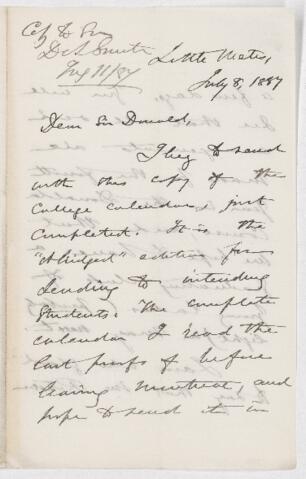 Sir
D A Smith
July 11/87
Little Metis,
July 8, 1887
Dear Sir Donald,
I beg to send
with this copy of the
College calendar, just
completed. It is the
"Abridged" edition for
sending to intending
Students. The complete
calendar I read the
last proofs of before
leaving Montreal, and
hope to send it in